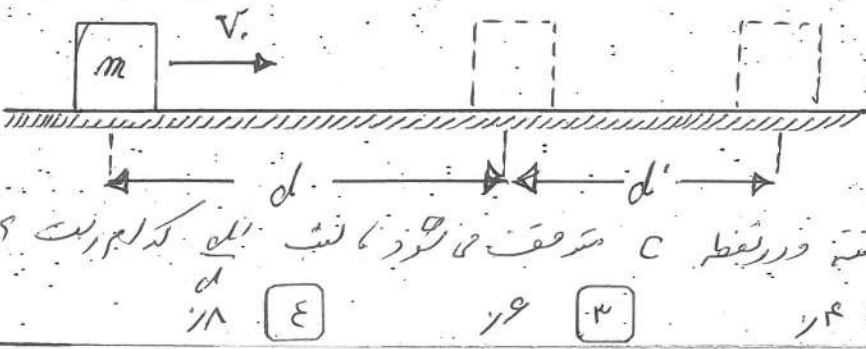 m V.
d d'
ودر نقطه C متوقف می شود نسبت d'/d کدام است ؟
٪۸ ٤ ٪۶ ۳ ٪۴